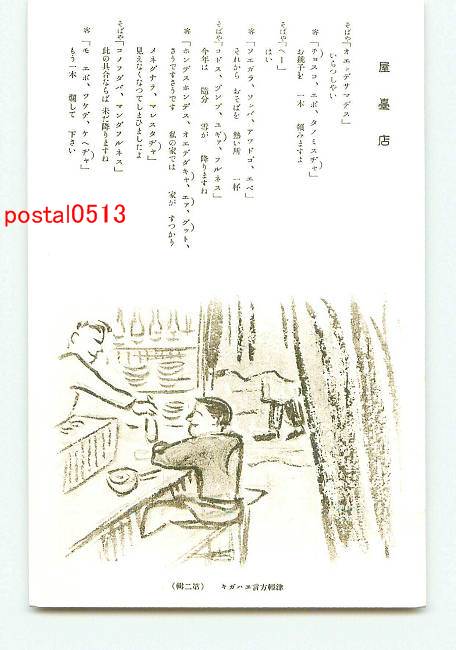 屋臺店
そばや「オエッデサマデス」
いらつしやい
客「チョスコ、エボ、タノミスヂャ」
お銚子を 一本 頼みますよ
そばや「ヘー」
はい
客「ソエガラ、ソッバ、アヅドゴ、エベ」
それから おそばを 熱い所 一杯
そばや「コドス、ヅンブ、ユギァ、フルネス」
今年は 隨分 雪が 降りますね
客「ホンデスホンデス、オエデダキャ、エァ、グット、
さうですさうです 私の家では 家が すつかり
メネグナテ、マレスタヂャ」
見えなくなつてしまひましたよ
そばや「コノフダバ、マンダフルネス」
此の具合ならば 未だ降りますね
客「モ、エボ、ツケデ、ケヘヂャ」
もう一本 燗して 下さい
postal0513
津輕方言エハガキ (第二輯)